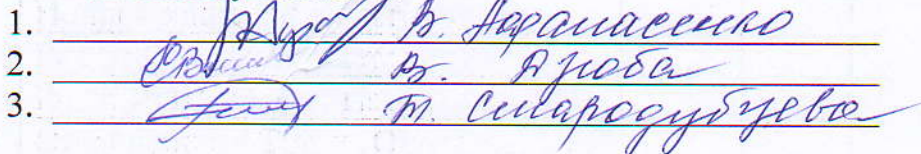 1. В. Афанасенко
2. В. Дзюба
3. Т. Стародубцева